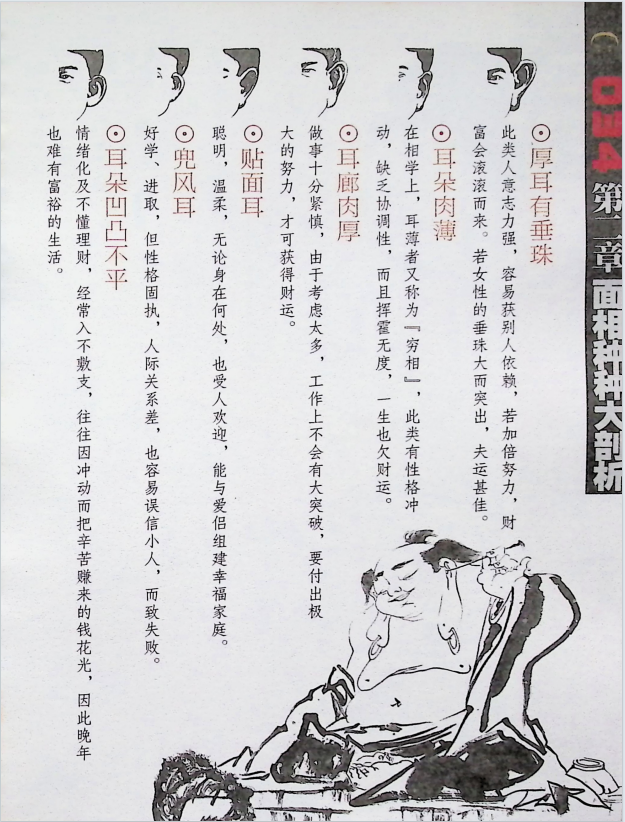 第二章 面相种种大剖析
厚耳有垂珠
此类人意志力强，容易获别人依赖，若加倍努力，财
富会滚滚而来。若女性的垂珠大而突出，夫运甚佳。
耳朵肉薄
在相学上，耳薄者又称为『穷相』，此类有性格冲
动，缺乏协调性，而且挥霍无度，一生也欠财运。
耳廓肉厚
做事十分紧慎，由于考虑太多，工作上不会有大突破，要付出极
大的努力，才可获得财运。
贴面耳
聪明，温柔，无论身在何处，也受人欢迎，能与爱侣组建幸福家庭。
兜风耳
好学、进取，但性格固执，人际关系差，也容易误信小人，而致失败。
耳朵凹凸不平
情绪化及不懂理财，经常入不敷支，往往因冲动而把辛苦赚来的钱花光，因此晚年
也难有富裕的生活。